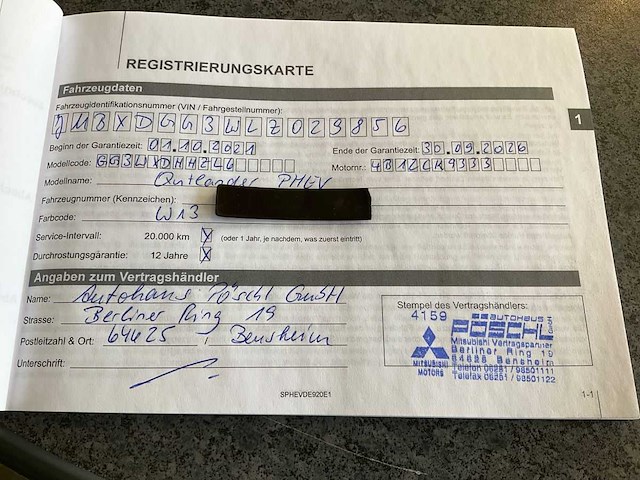 REGISTRIERUNGSKARTE
Fahrzeugdaten
1
Fahrzeugidentifikationsnummer (VIN / Fahrgestellnummer):
JMBXDGG3WLZ029856
Beginn der Garantiezeit: 01.10.2021 Ende der Garantiezeit: 30.09.2026
Modellcode: GG3WXDHHZL6 Motornr.: 4B12CR9333
Modellname: Outlander PHEV
Fahrzeugnummer (Kennzeichen):
Farbcode: W13
Service-Intervall: 20.000 km X (oder 1 Jahr, je nachdem, was zuerst eintritt)
Durchrostungsgarantie: 12 Jahre X
Angaben zum Vertragshändler
Name: Autohaus Pöschl GmbH
Strasse: Berliner Ring 19
Postleitzahl & Ort: 64625 , Bensheim
Unterschrift:
Stempel des Vertragshändlers:
4159
AUTOHAUS
PÖSCHL GmbH
Mitsubishi Vertragspartner
Berliner Ring 19
64625 Bensheim
Telefon 06251 / 98501111
Telefax 06251 / 98501122
MITSUBISHI
MOTORS
SPHEVDE920E1
1-1